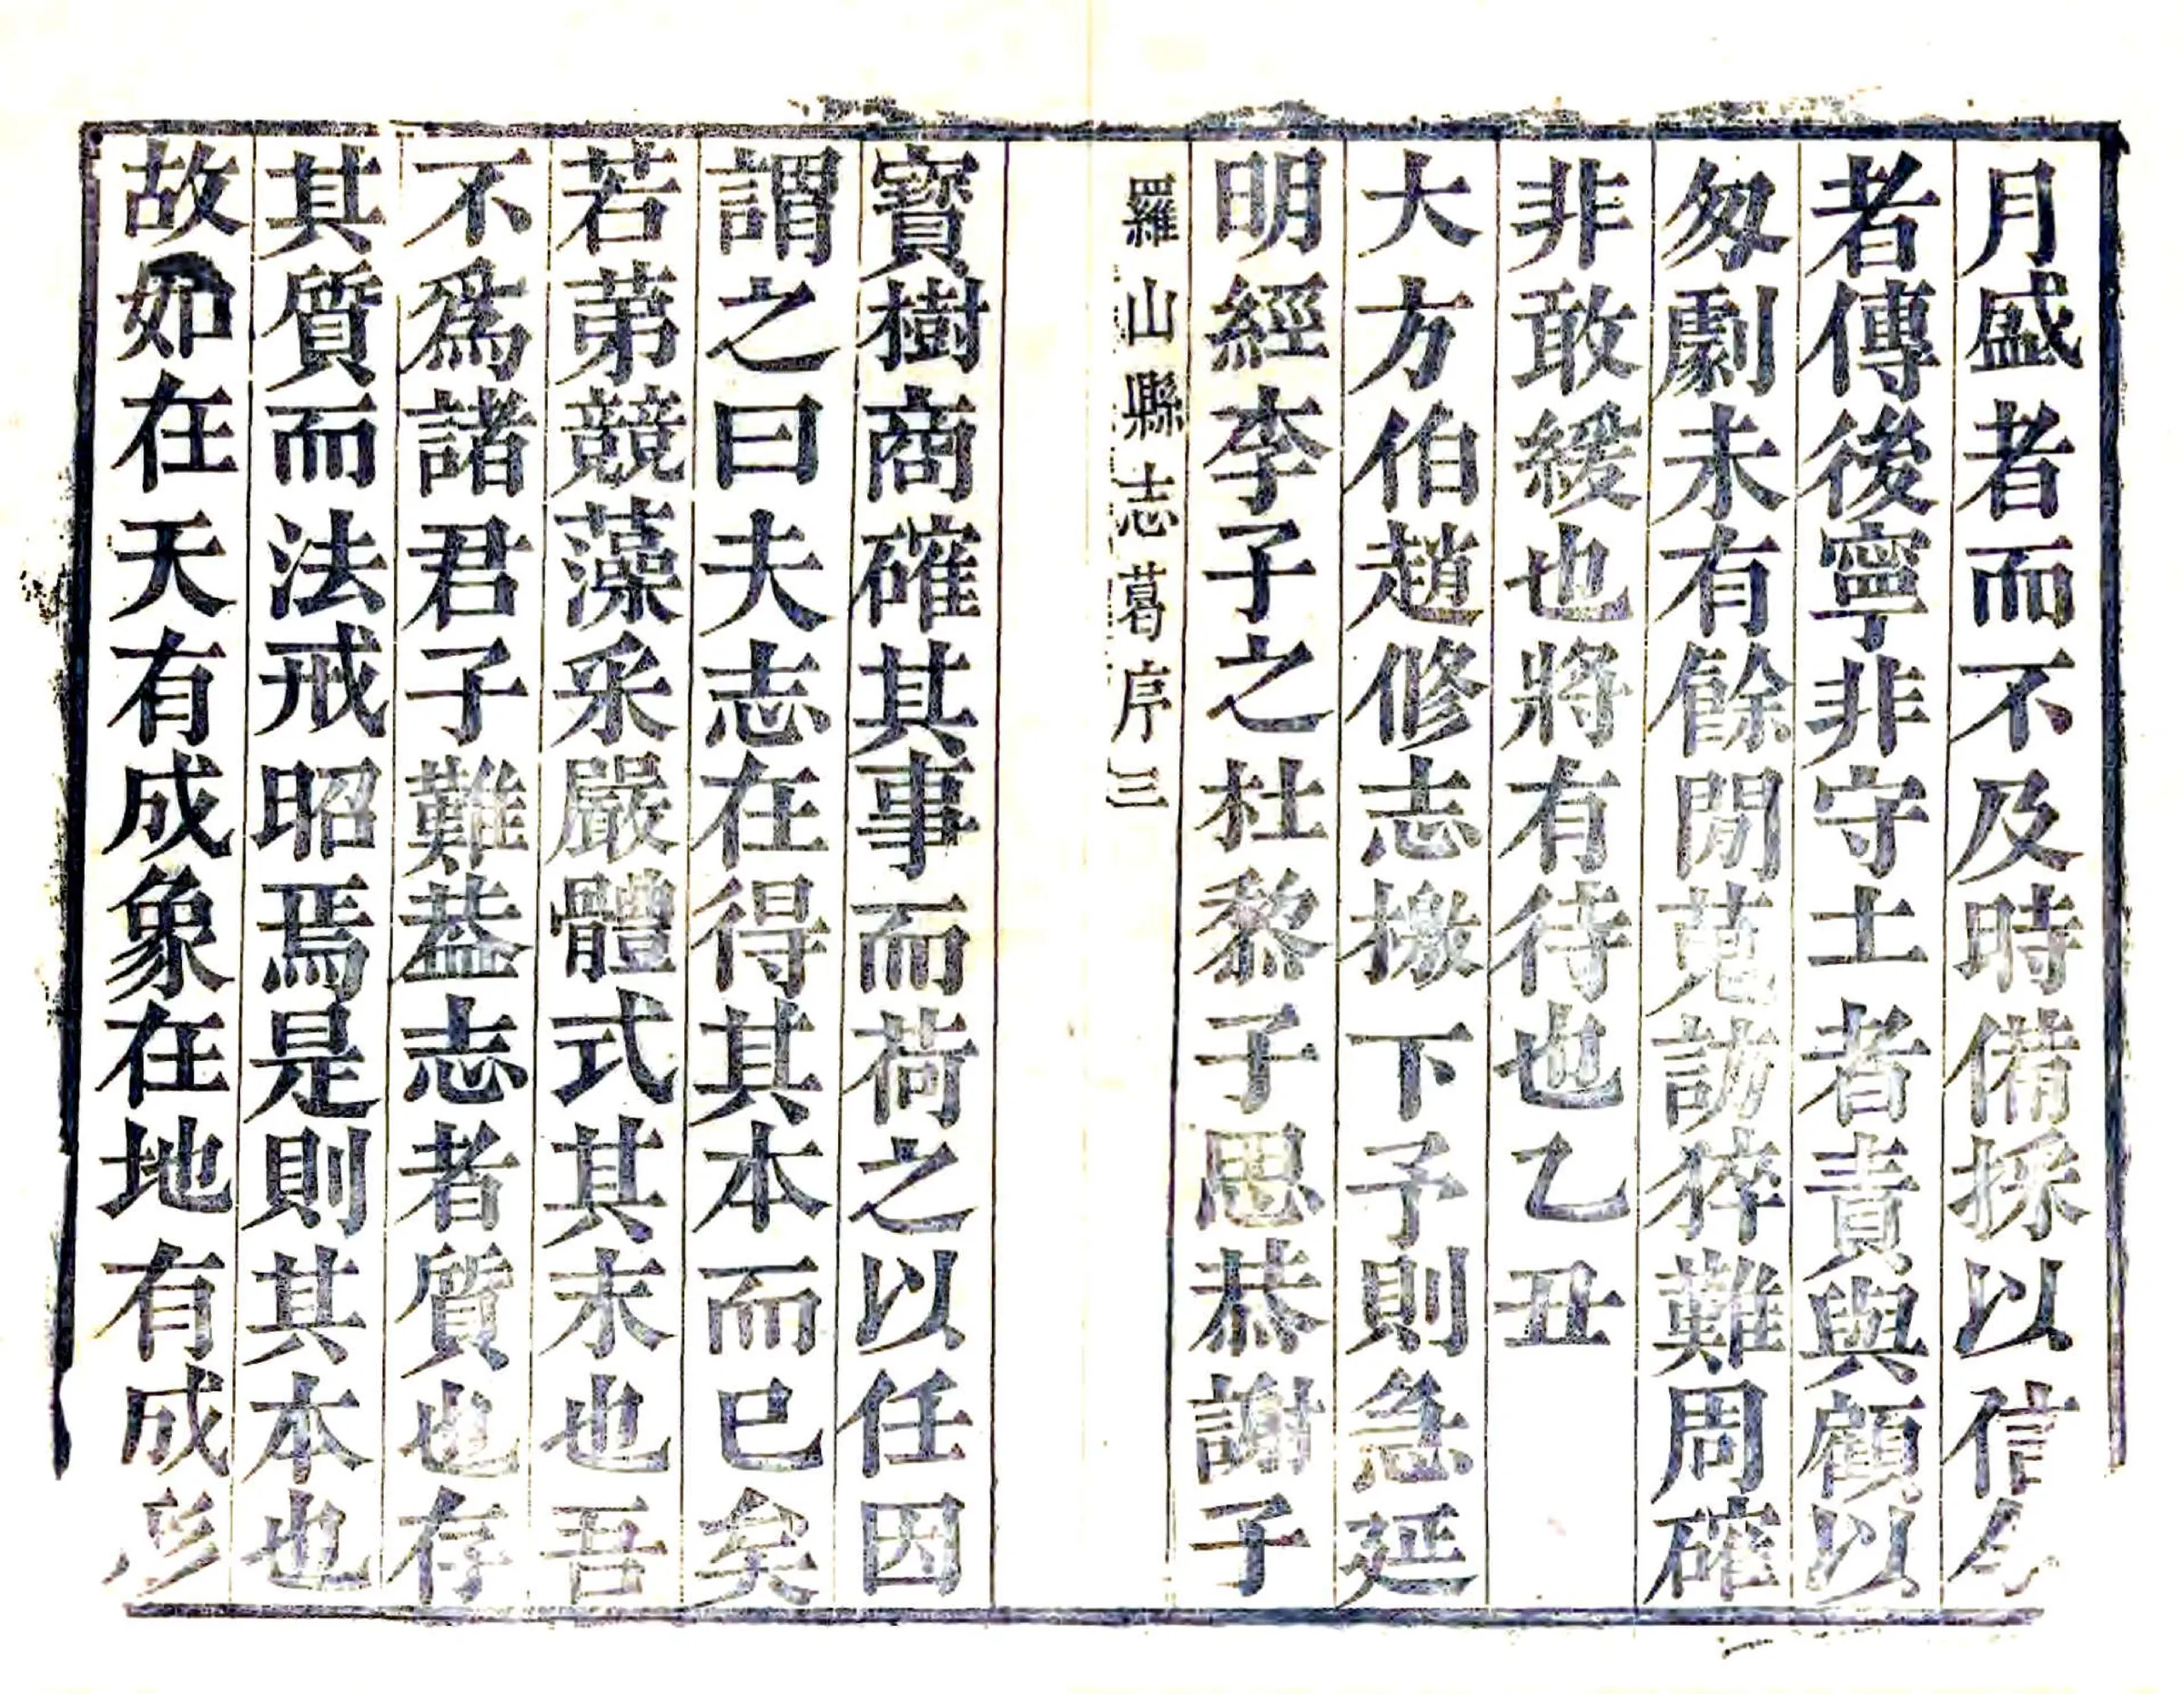 月盛者而不及時備採以信今
者傳後寧非守土者責與顧以
匆劇未有餘閒蒐訪猝難周確
非敢緩也將有待也乙丑
大方伯趙修志檄下予則急延
明經李子之杜黎子思恭謝子
羅山縣志葛序三
寶樹商確其事而荷之以任因
謂之曰夫志在得其本而已矣
若苐競藻采嚴體式其末也吾
不爲諸君子難葢志者質也存
其質而法戒昭焉是則其本也
故如在天有成象在地有成形